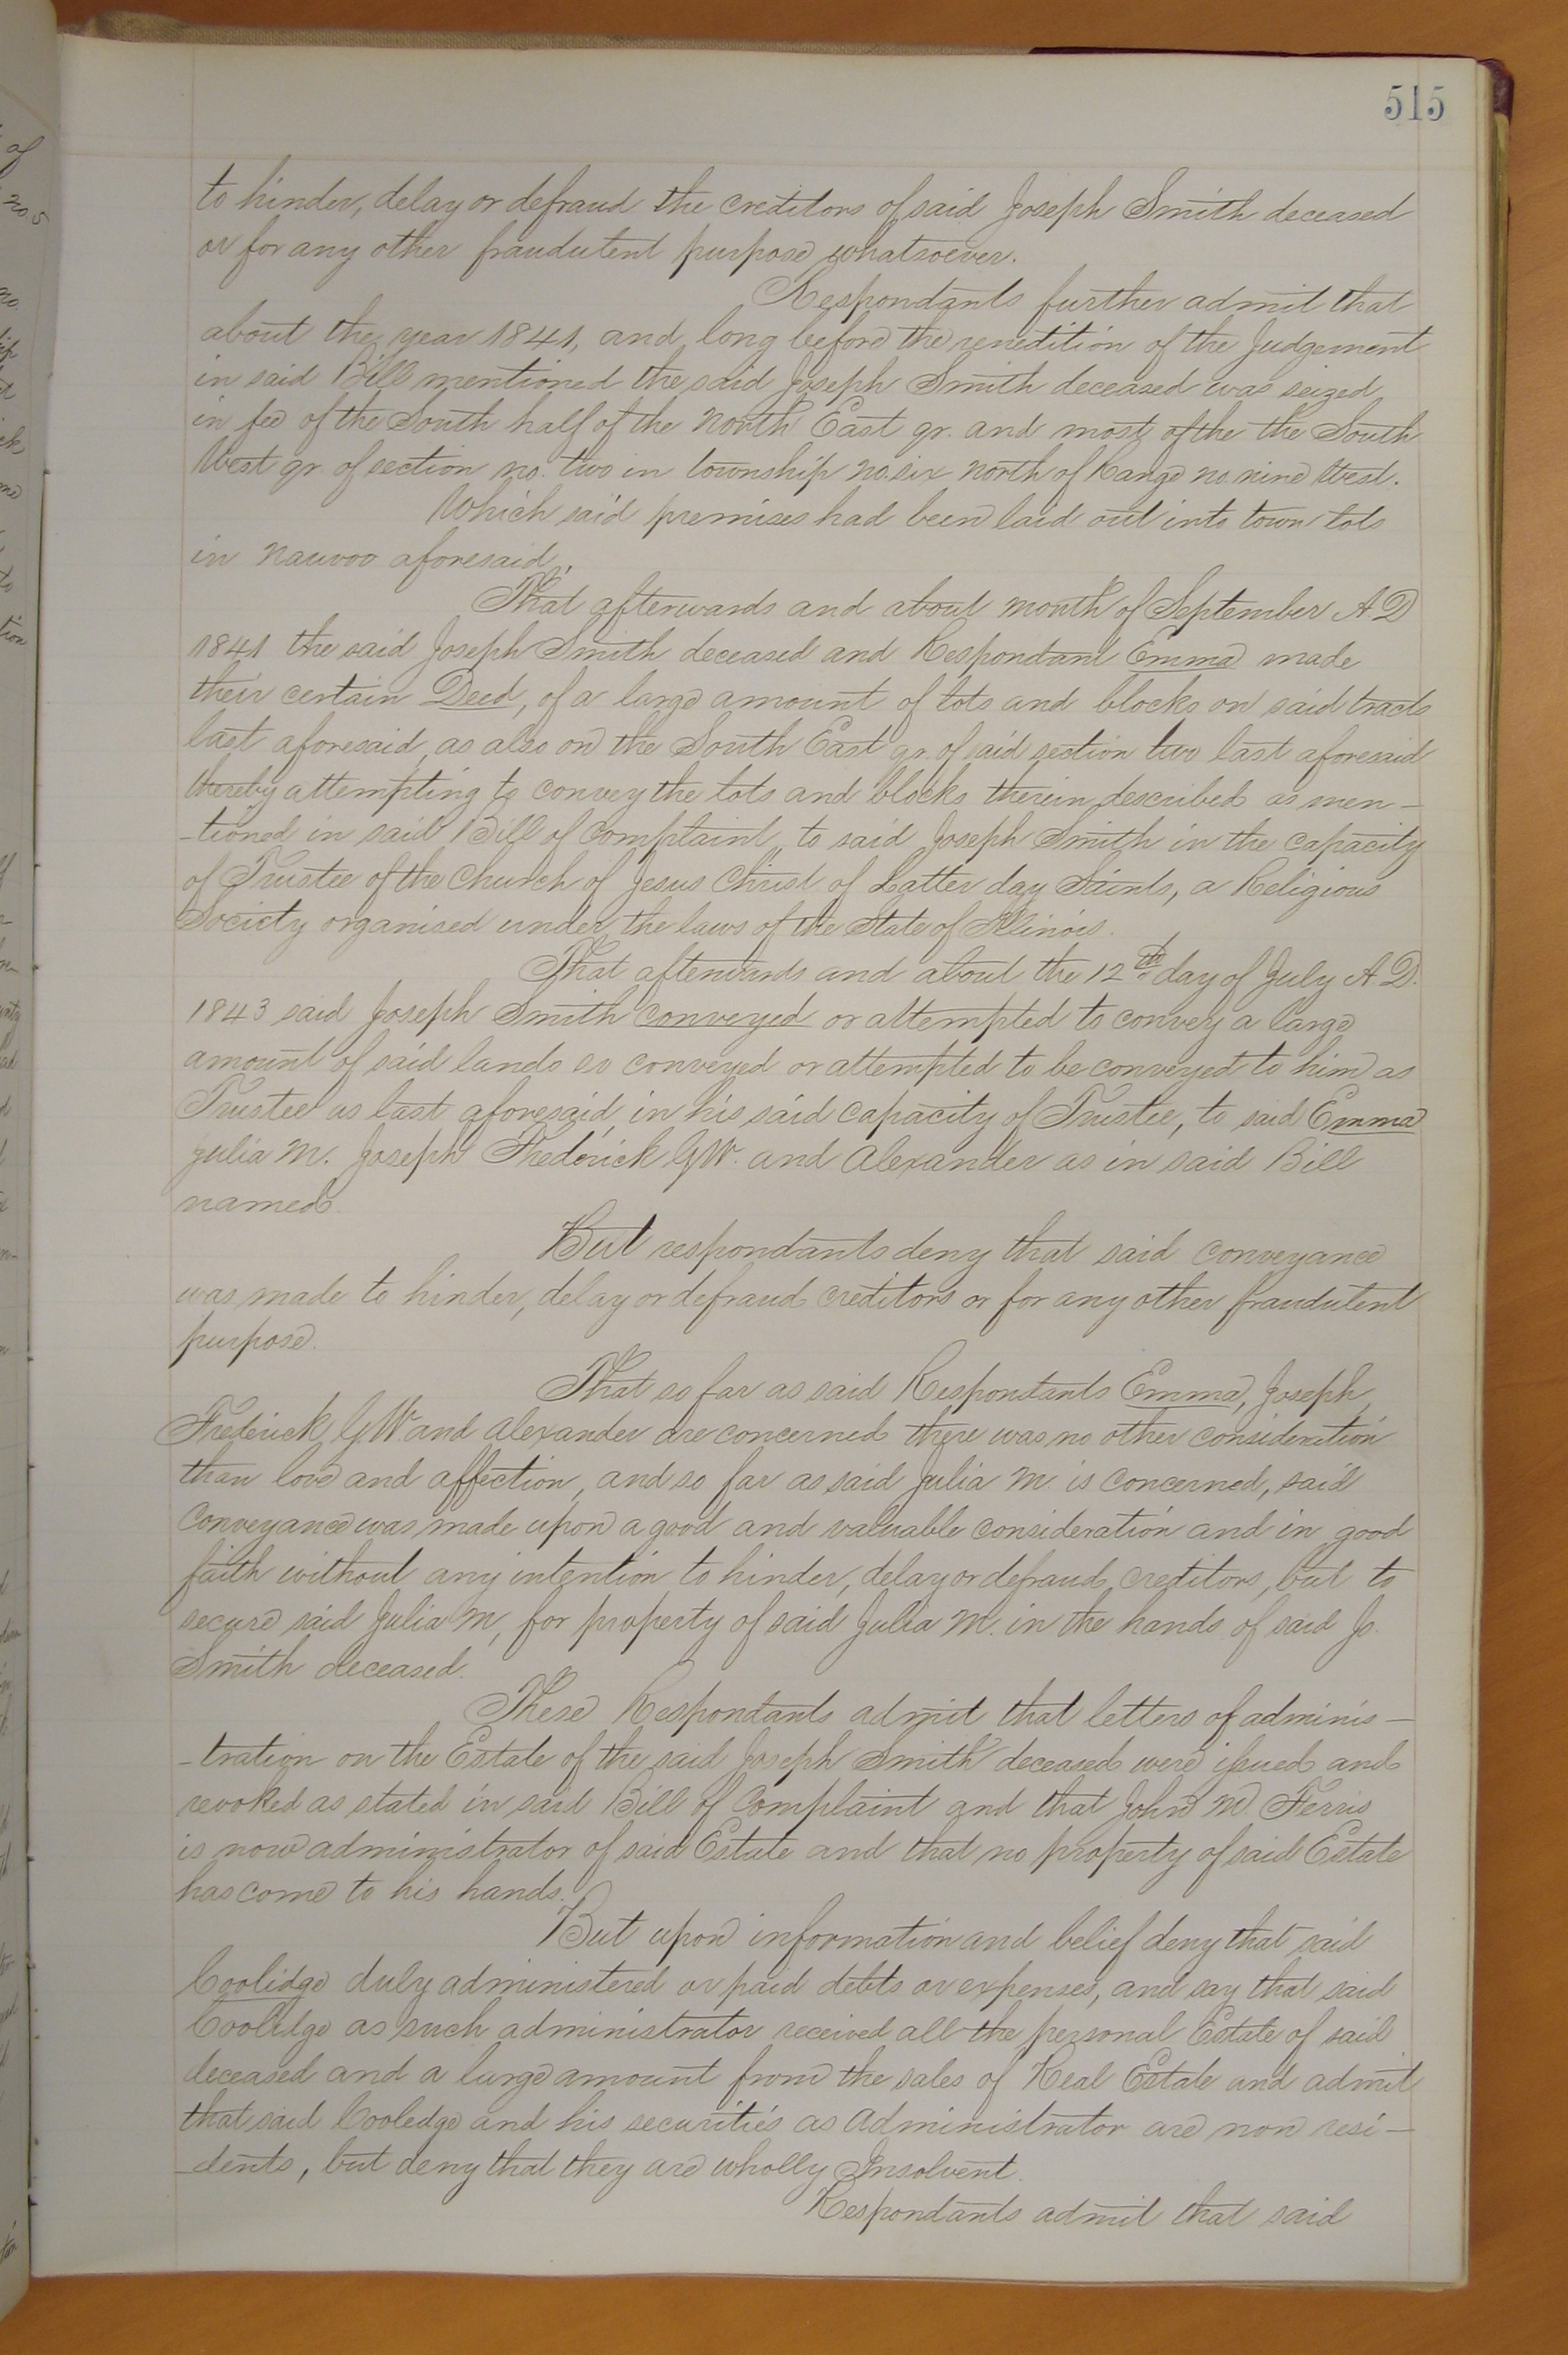 515
to hinder, delay or defraud the creditors of said Joseph Smith deceased
or for any other fraudulent purpose whatsoever.
Respondants further admit that
about the year 1841, and long before the renedition of the Judgement
in said Bill mentioned the said Joseph Smith deceased was seized
in fee of the South half of the North East qr. and most of the the South
West qr. of section no. two in township no. six North of Range no. nine West.
Which said premises had been laid out into town lots
in Nauvoo aforesaid,
That afterwards and about month of September A D
1841 the said Joseph Smith deceased and Respondant Emma made
their certain Deed, of a large amount of lots and blocks on said tracts
last aforesaid, as also on the South East qr. of said section two last aforesaid
thereby attempting to convey the lots and blocks therein described as men-
-tioned in said Bill of Complaint, to said Joseph Smith in the capacity
of Trustee of the Church of Jesus Christ of Latter day Saints, a Religious
Society organised under the laws of the State of Illinois.
That afterwards and about the 12th day of July A D.
1843 said Joseph Smith conveyed or attempted to convey a large
amount of said lands so conveyed or attempted to be conveyed to him as
Trustee as last aforesaid, in his said capacity of Trustee, to said Emma
Julia M. Joseph Frederick G W. and Alexander as in said Bill
named.
But respondants deny that said conveyance
was made to hinder, delay or defraud creditors or for any other fraudulent
purpose.
That so far as said Respondants Emma, Joseph,
Frederick, G W. and Alexander are concerned there was no other consideration
than love and affection, and so far as said Julia M. is concerned, said
Conveyance was made upon a good and valuable consideration and in good
faith without any intention to hinder, delay or defraud creditors, but to
secure said Julia M, for property of said Julia M. in the hands of said Jo.
Smith deceased.
These Respondants admit that letters of adminis-
-tration on the Estate of the said Joseph Smith deceased were issued and
revoked as stated in said Bill of Complaint and that John M. Ferris
is now administrator of said Estate and that no property of said Estate
has come to his hands.
But upon information and belief deny that said
Coolidge duly administered or paid debts or expenses, and say that said
Coolidge as such administrator received all the personal Estate of said
deceased and a large amount from the sales of Real Estate and admit
that said Cooledge and his securities as Administrator are non resi-
-dents, but deny that they are wholly Insolvent.
Respondants admit that said